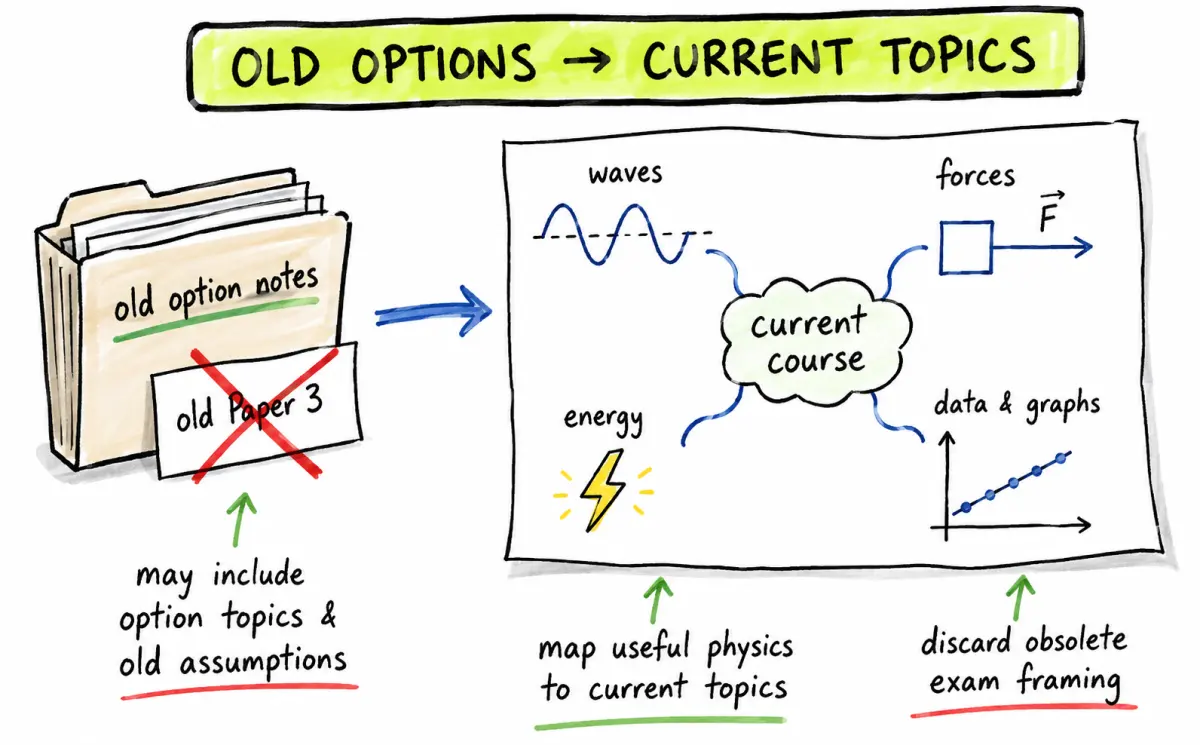 OLD OPTIONS → CURRENT TOPICS
old option notes
old Paper 3
may include
option topics &
old assumptions
waves
forces
F⃗
current
course
energy
data & graphs
map useful physics
to current topics
discard obsolete
exam framing